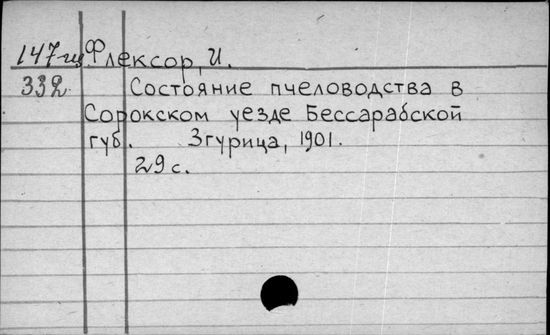 147-щ Флексор, И.
332 Состояние пчеловодства в
Сорокском уезде Бессарабской
губ. Згурица, 1901.
29 с.